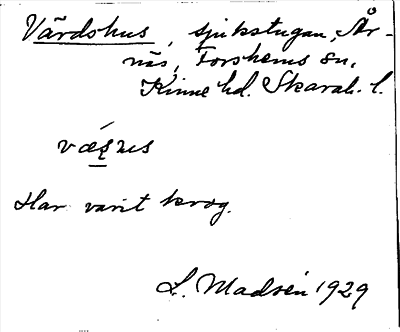 Värdshus, sjukstugan, År-
näs, Forshems sn,
Kinne hd. Skarab. l.
Har varit krog.
L. Madsén 1929